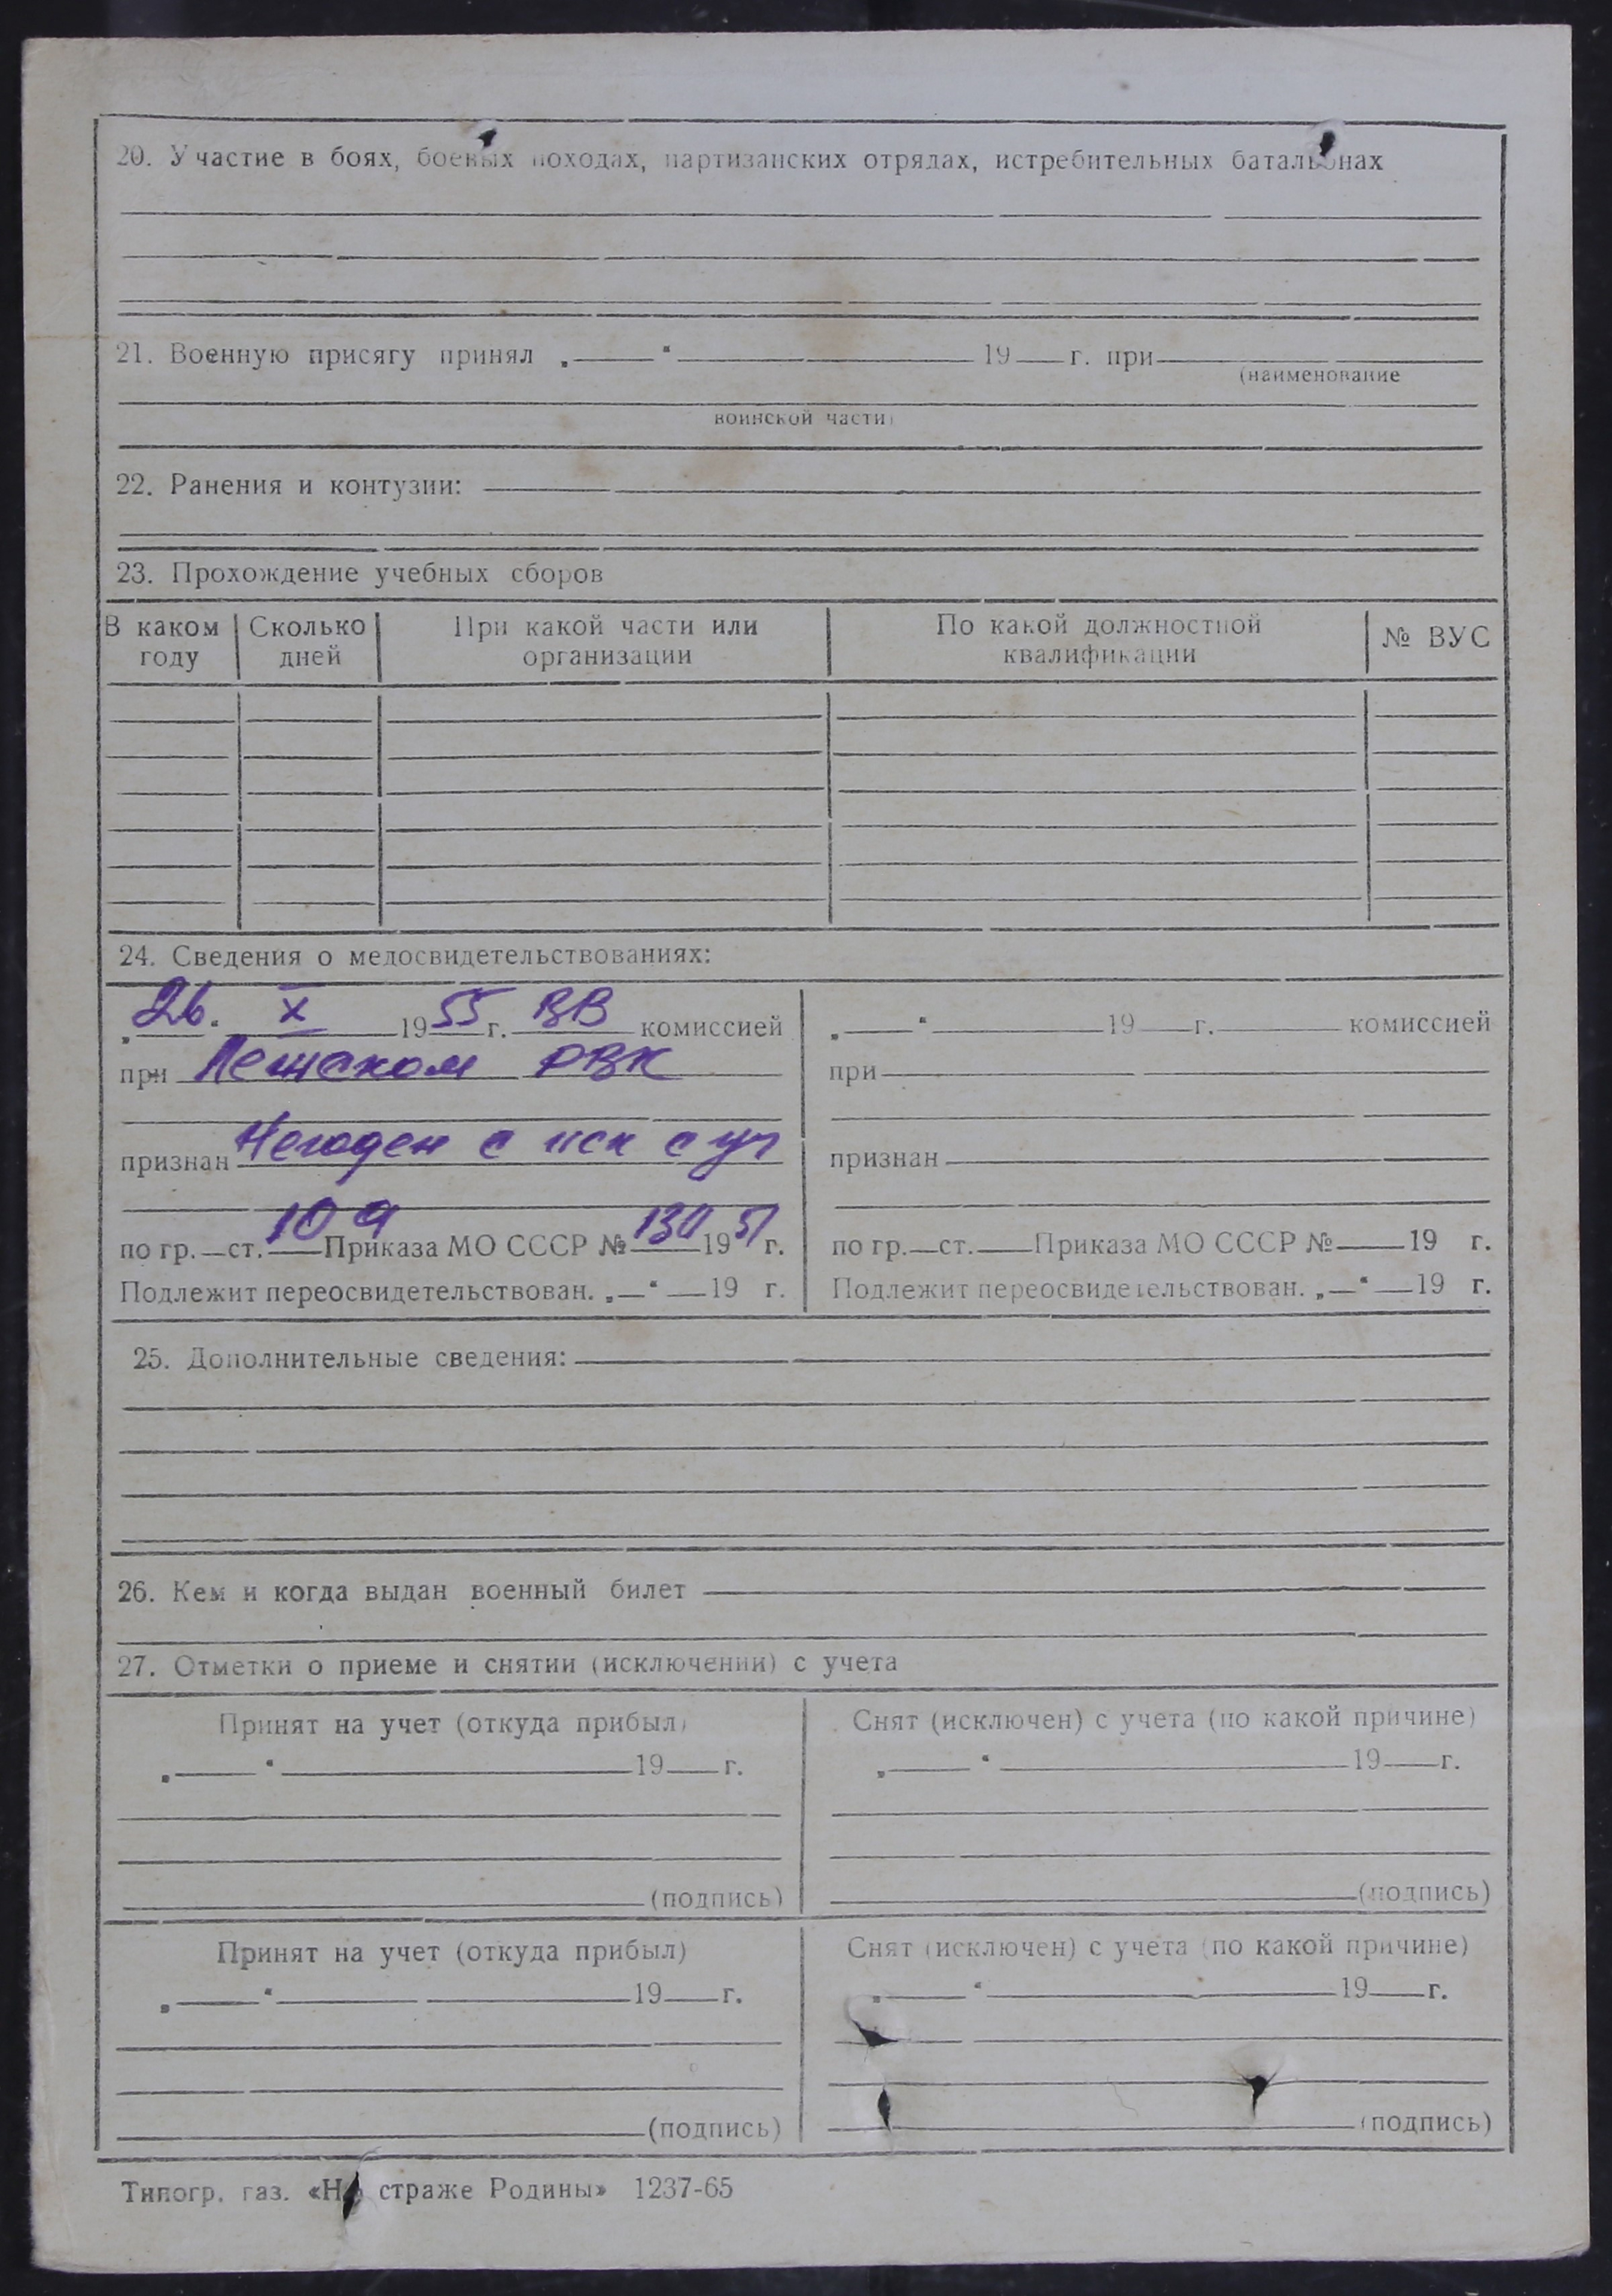 20. Участие в боях, боевых походах, партизанских отрядах, истребительных батальонах
21. Военную присягу принял „ “ 19 г. при
(наименование
воинской части)
22. Ранения и контузии:
23. Прохождение учебных сборов
В каком году Сколько дней При какой части или организации По какой должностной квалификации № ВУС
24. Сведения о медосвидетельствованиях:
„26.“ X 1955 г. ВВ комиссией
при РВК
признан Негоден с иск с уч
по гр. ст. 10 а Приказа МО СССР № 130 1951 г.
Подлежит переосвидетельствован. „ “ 19 г.
„ “ 19 г. комиссией
при
признан
по гр. ст. Приказа МО СССР № 19 г.
Подлежит переосвидетельствован. „ “ 19 г.
25. Дополнительные сведения:
26. Кем и когда выдан военный билет
27. Отметки о приеме и снятии (исключении) с учета
Принят на учет (откуда прибыл)
„ “ 19 г.
(подпись)
Снят (исключен) с учета (по какой причине)
„ “ 19 г.
(подпись)
Принят на учет (откуда прибыл)
„ “ 19 г.
(подпись)
Снят (исключен) с учета (по какой причине)
„ “ 19 г.
(подпись)
Типогр. газ. «На страже Родины» 1237-65